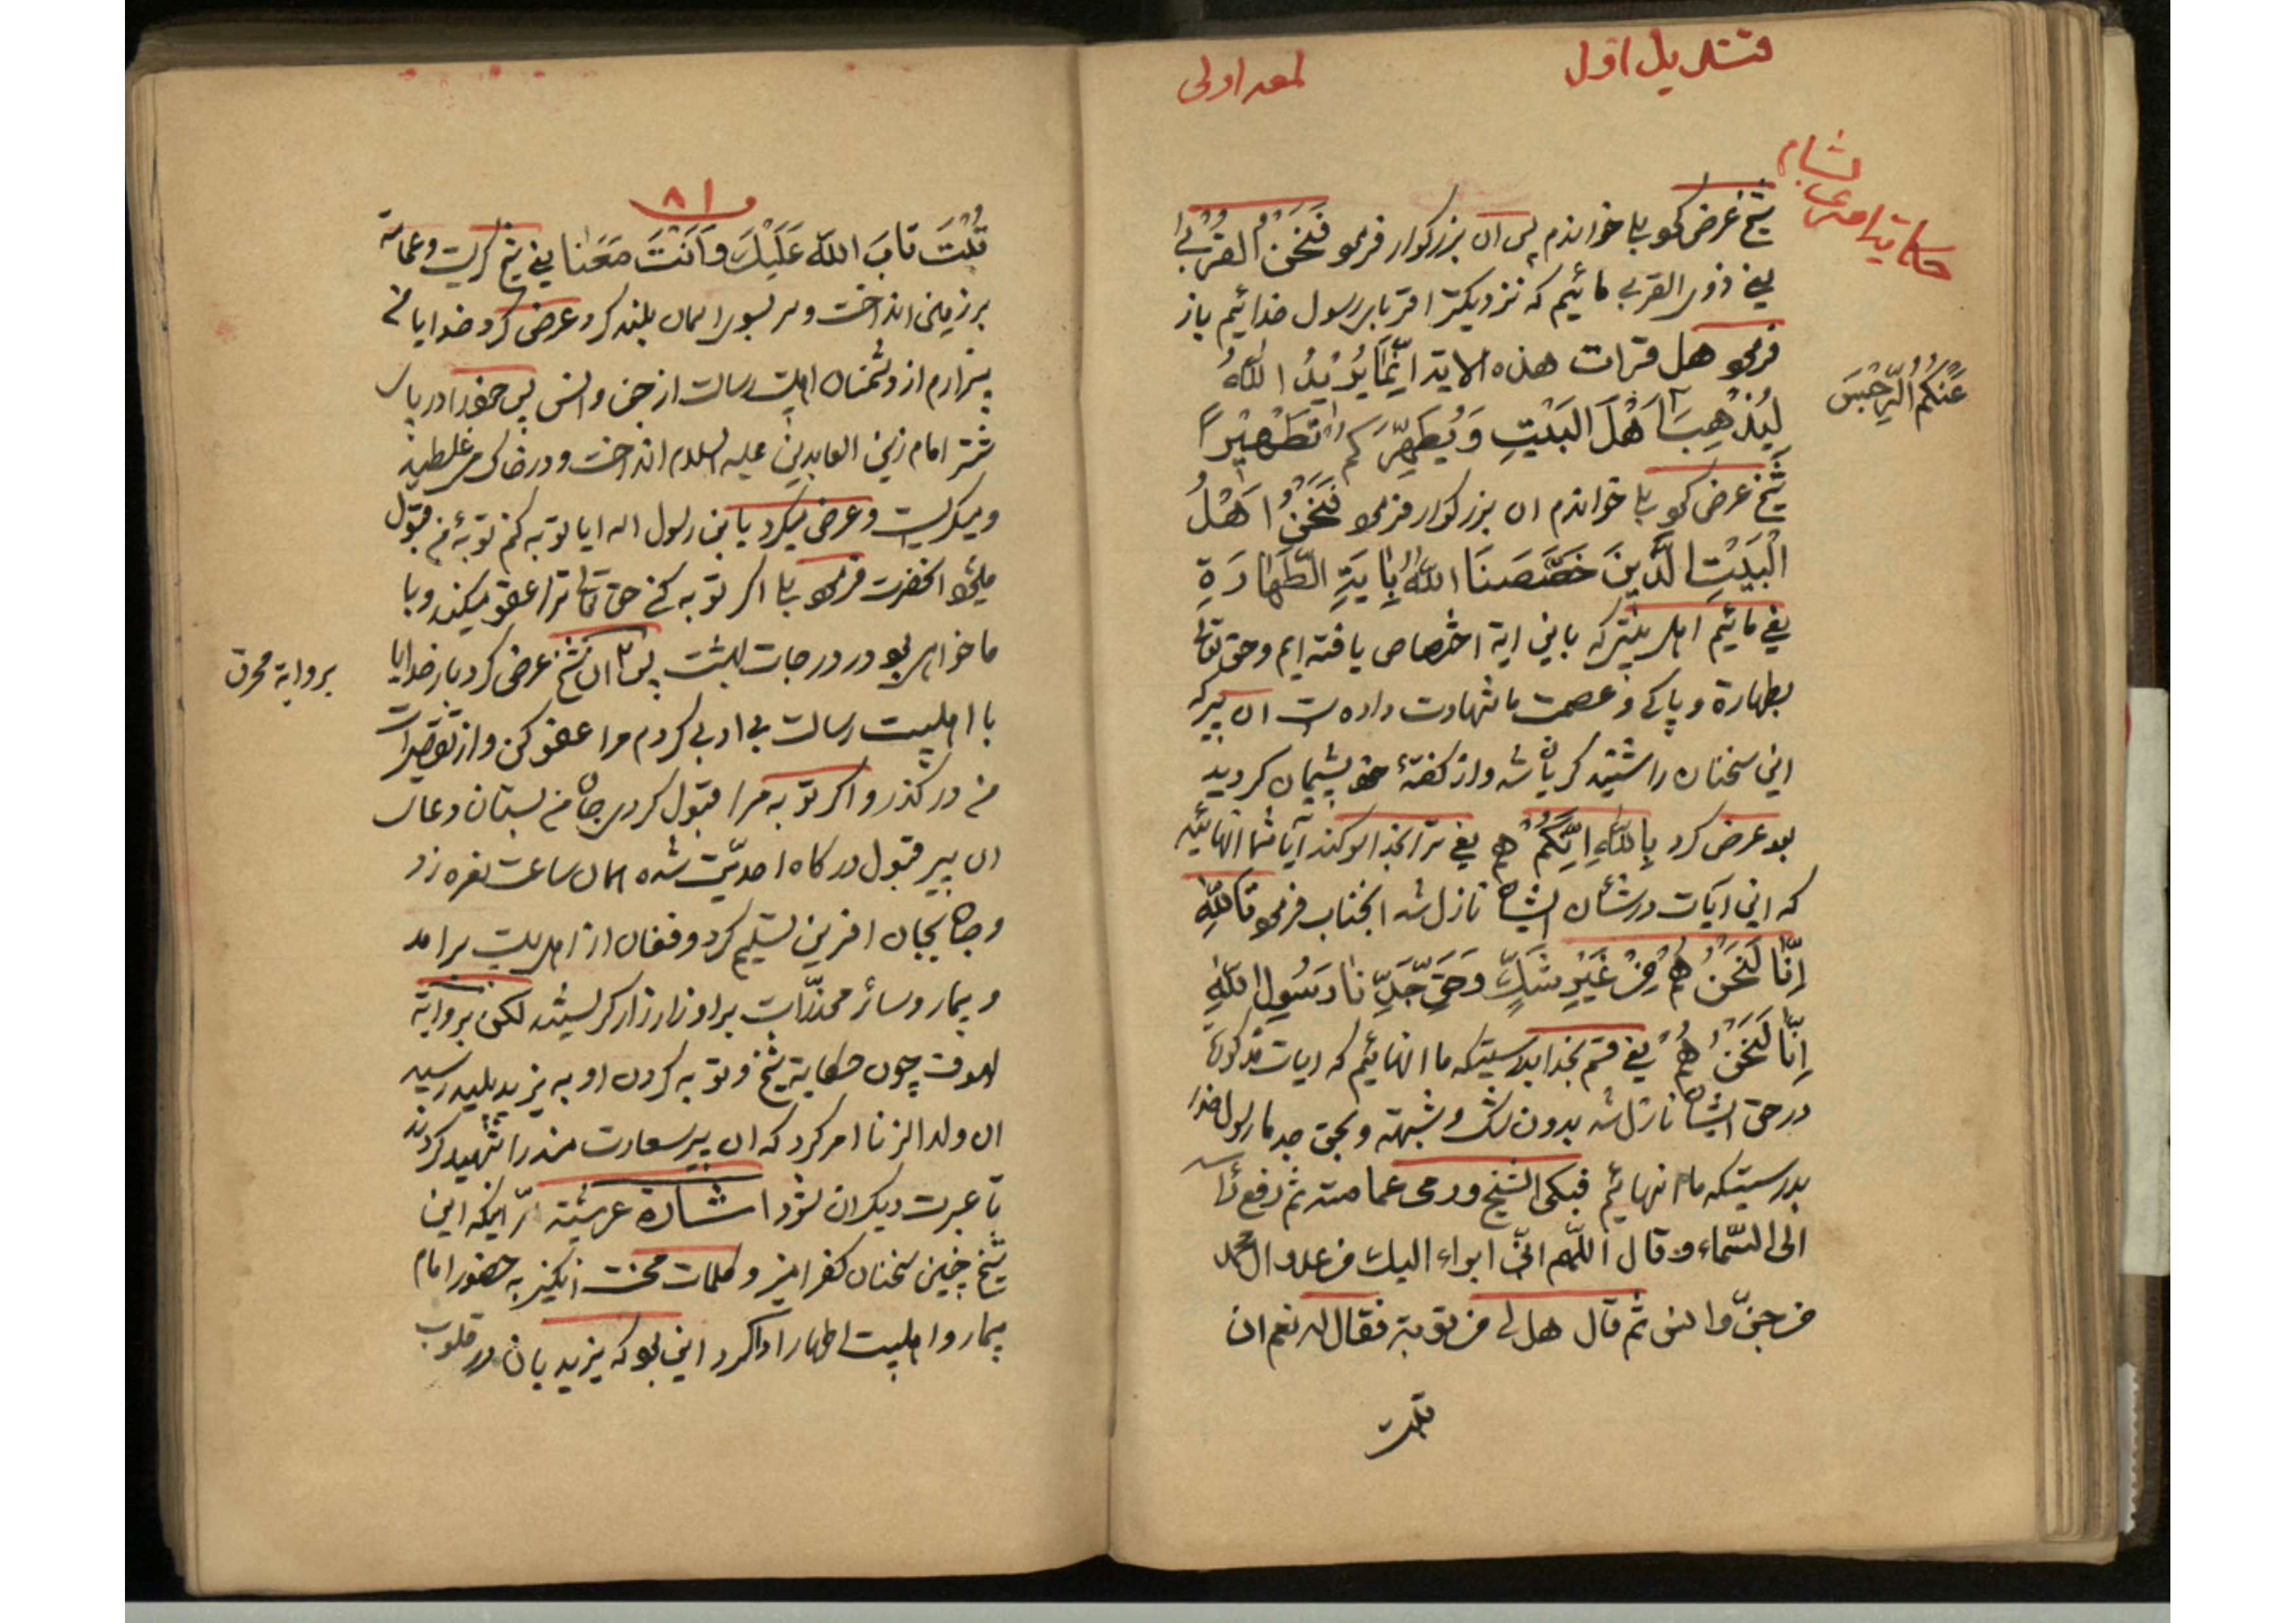 قندیل اول
لمعه اولی
حکایة پیر مردی
بشام
شیخ عرض کرد بلی خوانده‌ام پس ان بزرکوار فرمود فَنَحْنُ القُرْبٰی
یعنی ذوی القربی مائیم که نزدیکتر اقربا برسول خدائیم باز
فرمود هل قرات هذه الایة اِنَّمَا یُرِیْدُ اللّٰهُ
لِیُذْهِبَ اَهْلَ البَیْتِ وَیُطَهِّرَکُمْ تَطْهِیْرًا
عَنْکُمُ الرِّجْسَ
شیخ عرض کرد بلی خواندم ان بزرکوار فرمود فَنَحْنُ اَهْلُ
الْبَیْتِ الَّذِیْنَ خَصَّصَنَا اللّٰهُ بِاٰیَةِ الطَّهٰارَةِ
یعنی مائیم اهل بیتی که باین ایة اختصاص یافته ایم وحق تعالی
بطهارة و پاکی و عصمت ما شهادت داده است ان پیر که
این سخنان را شنید کریان شد واز کفتهٔ خود پشیمان کردید
بعد عرض کرد بِاللّٰهِ اِنَّکُمْ هُمْ یعنی ترا بخدا سوکند آیا شما انهائید
که این ایات در شأن ایشان نازل شد انجناب فرمود تَاللّٰهِ
اِنَّا لَنَحْنُ هُمْ مِنْ غَیْرِ شَکٍّ وَحَقِّ جَدِّنَا رَسُولِ اللّٰهِ
اِنَّا لَنَحْنُ هُمْ یعنی قسم بخدا بدرستیکه ما انهائیم که ایات مذکوره
در حق ایشان نازل شد بدون شک و شبهة و بحق جد ما رسول خدا
بدرستیکه ما انهائیم فبکی الشیخ ورمی عمامته ثم رفع راسه
الی السماء وقال اللّهم انّی ابراء الیك من عدو ال محمد
من جنّ وانس ثم قال هل لی من توبة فقال له نعم ان
تبت
٨١
تُبْتَ تَابَ اللّٰهُ عَلَیْكَ وَاَنْتَ مَعَنَا یعنی شیخ کریست وعمامه
بر زمین انداخت وسر بسوی اسمان بلند کرد عرض کرد خدایا من
بیزارم از دشمنان اهلبیت رسالت از جن وانس پس خود را در پای
شتر امام زین العابدین علیه السلام انداخت و در خاک می غلطید
ومیکریست وعرض میکرد یابن رسول الله ایا توبه کنم توبهٔ من قبول
میشود انحضرت فرمود بلی اکر توبه کنی حق تعالی ترا عفو میکند وبا
ما خواهی بود در درجات بهشت پس ان شیخ عرض کرد بار خدایا
با اهلبیت رسالت بی ادبی کردم مرا عفو کن واز تقصیرات
من در کذر و اکر توبه مرا قبول کردی جان من بستان دعای
ان پیر قبول درکاه احدیّت شده همان ساعت نعره زد
وجان بجان افرین تسلیم کرد وفغان از اهلبیت برامد
وبیمار وسائر مخدّرات براو زار زار کریستند لکن بروایة
بروایة محرق
لهوف چون حکایة شیخ وتوبه کردن او به یزید پلید رسید
ان ولد الزنا امر کرد که ان پیر سعادتمند را شهید کردند
تا عبرت دیکران شود اشارة عرشیّة سرّ اینکه این
شیخ چنین سخنان کفر امیز و کلمات محنت انکیز به حضور امام
بیمار واهلبیت اطهار ادا کرد این بود که یزیدیان در قلوب